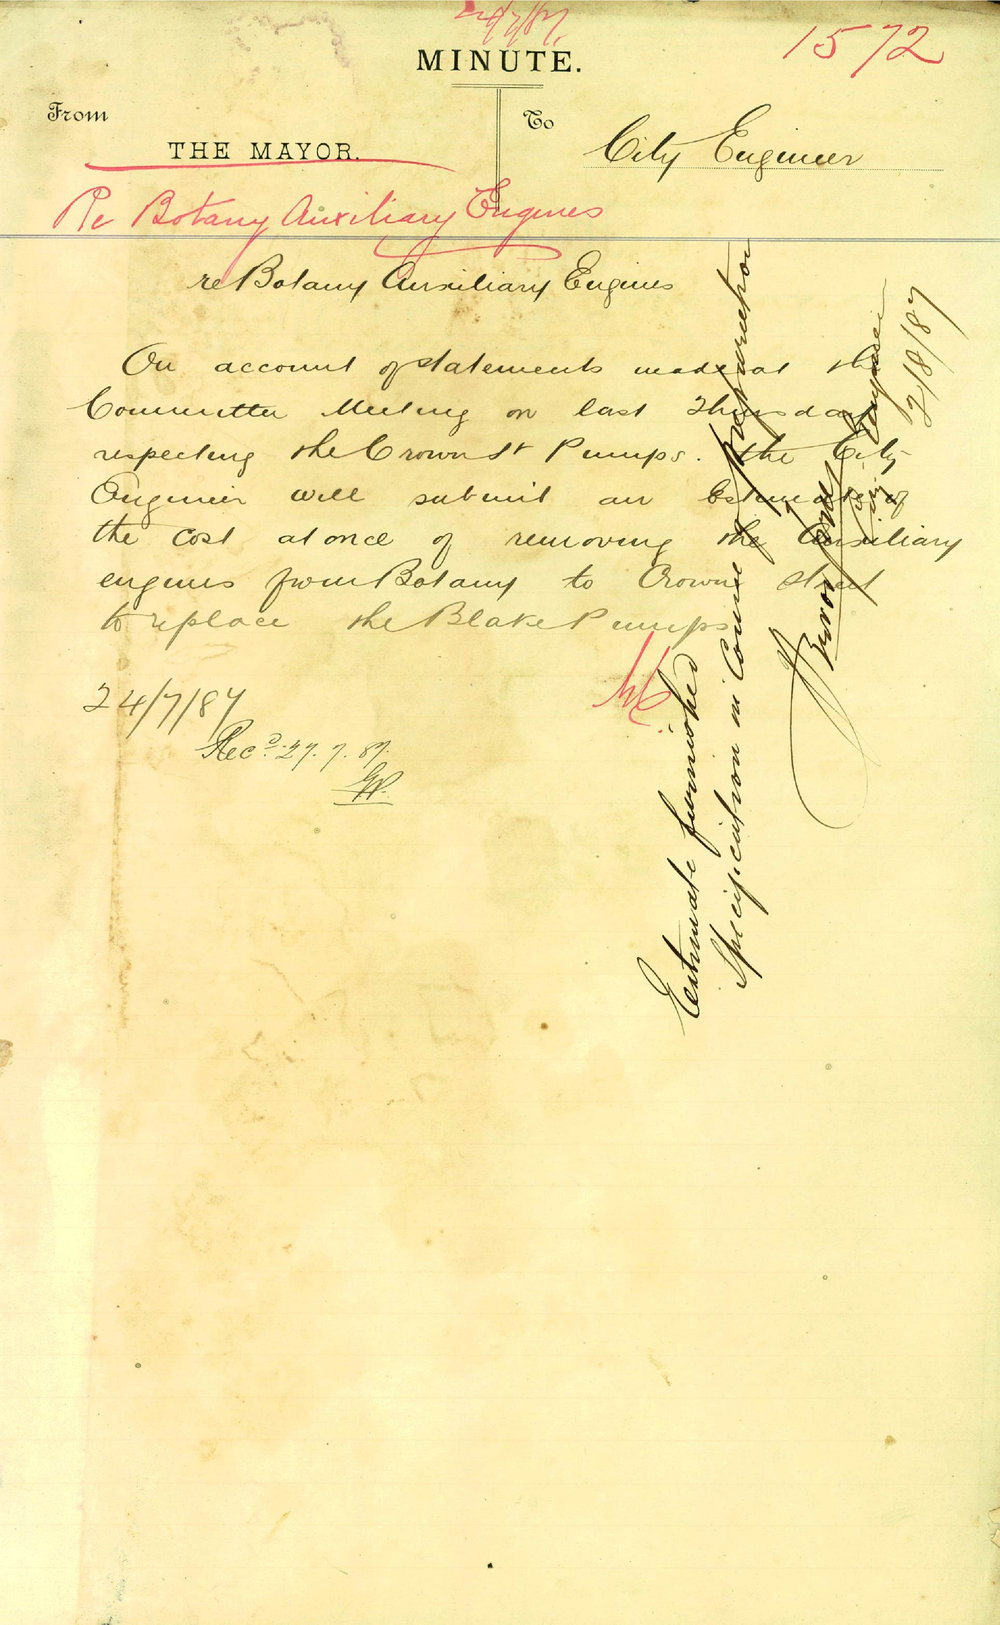 1572
MINUTE.
From
To
THE MAYOR.
City Engineer
Re Botany Auxiliary Engines
re Botany Auxiliary Engines
On account of statements made at the
Committee Meeting on last Thursday
respecting the Crown St Pumps. the City
Engineer will submit an Estimate of
the cost at once of removing the Auxiliary
engines from Botany to Crown Street
to replace the Blake Pumps
24/7/87
Recd. 27.7.87.
Estimate furnished
Specification in Course of preparation
City Engineer
2/8/87